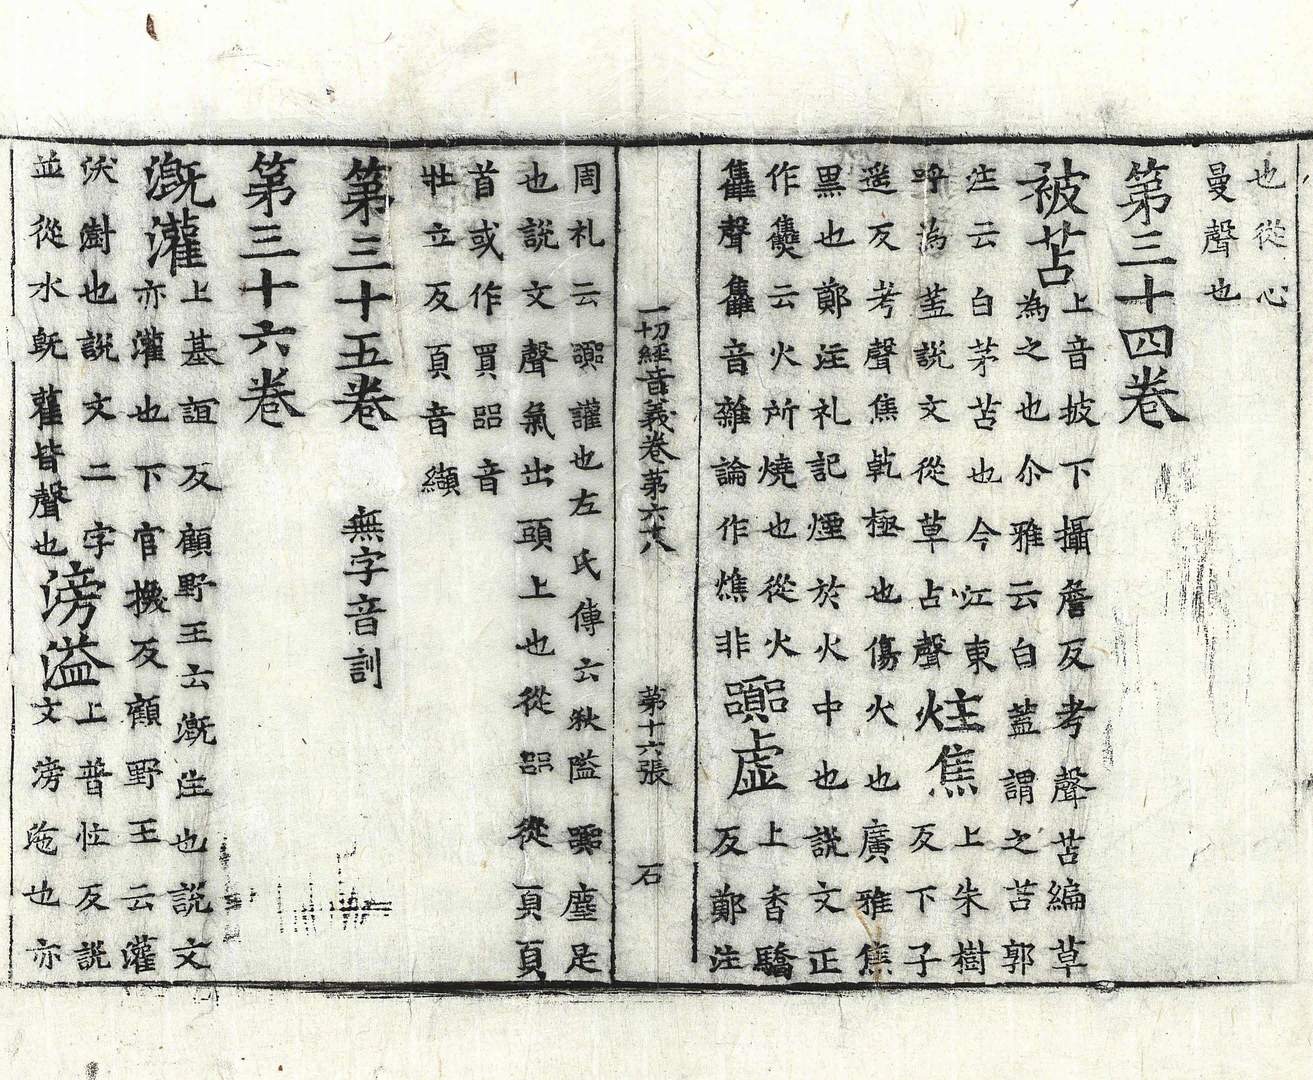 也從心
曼聲也
第三十四卷
被苫
上音披下攝詹反考聲苫編草
為之也尒雅云白蓋謂之苫郭
注云白茅苫也今江東
呼為蓋說文從草占聲
炷焦
上朱樹
反下子
遥反考聲焦乾極也傷火也廣雅焦
黒也鄭注礼記煙於火中也說文正
作𤓪云火所燒也從火
雥聲雥音雜論作燋非
嚻虛
上香驕
反鄭注
一切經音義卷第六十八 第十六張 石
周礼云嚻讙也左氏傳云湫隘嚻塵是
也說文聲氣出頭上也從㗊從頁頁
首或作買㗊音
壮立反頁音纈
第三十五卷 無字音訓
第三十六卷
溉灌
上基誼反顧野王云溉注也說文
亦灌也下官換反顧野王云灌
沃澍也說文二字
並從水旣雚皆聲也
滂溢
上普忙反說
文滂沲也亦